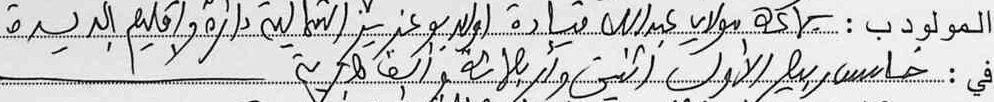 المولود ب: جماعة مولاي عبدالله قيادة اولاد بوعزيز الشمالية دائرة واقليم الجديدة
في: خامس ربيع الأول اثنين وأربعمائة وألف هجرية